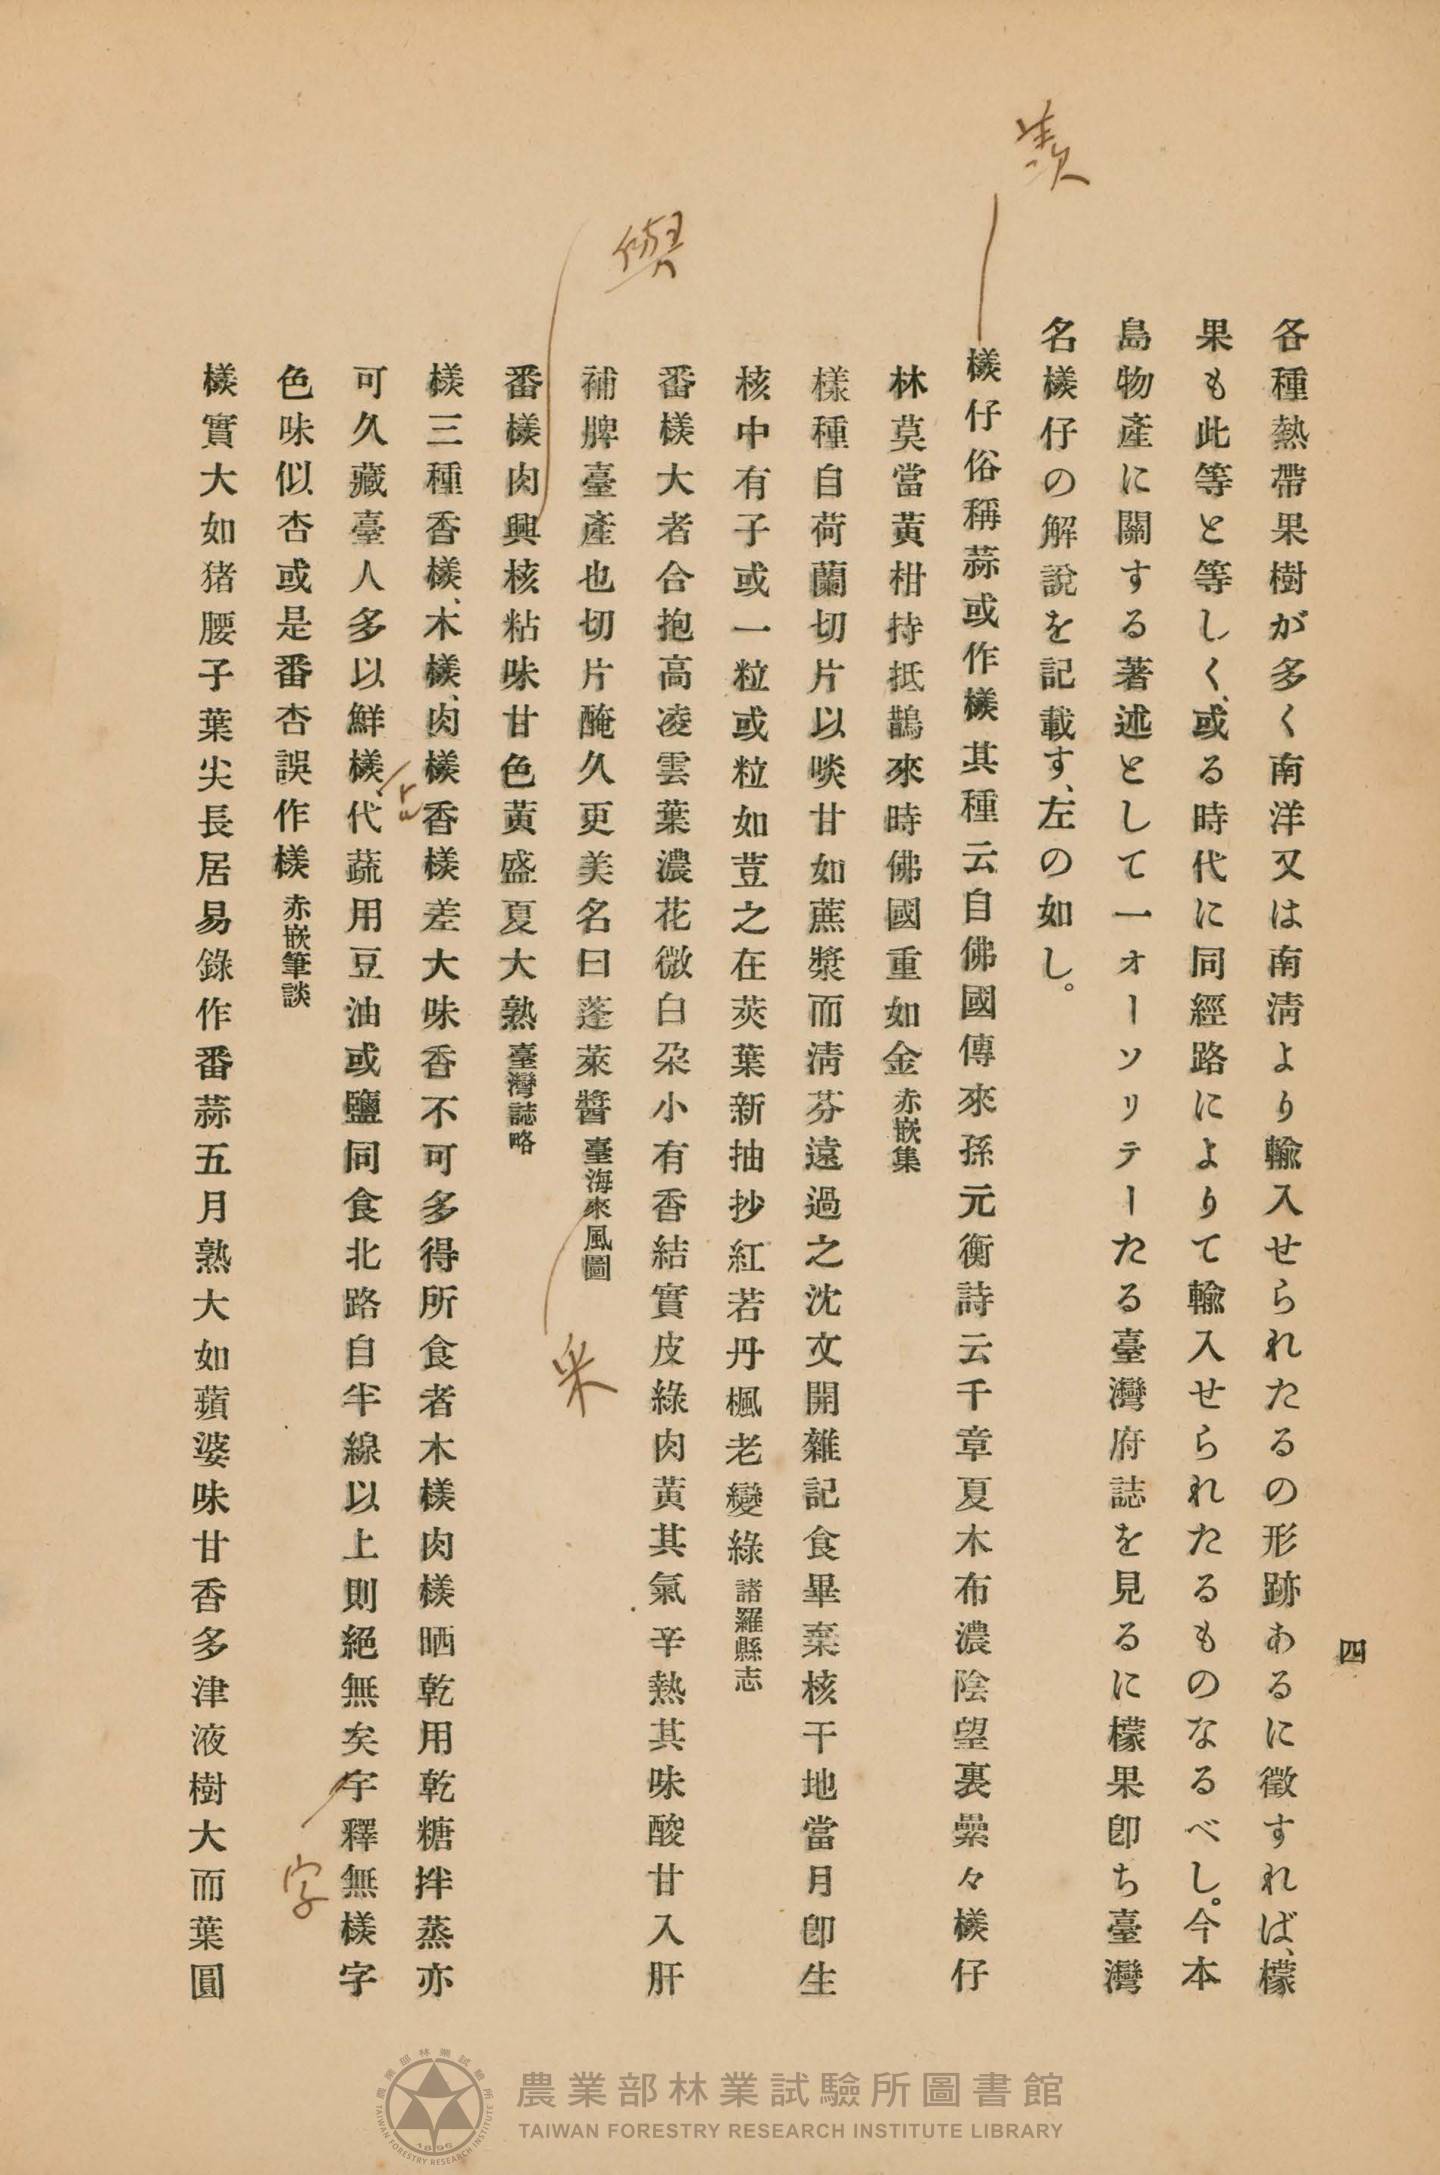 各種熱帶果樹が多く南洋又は南淸より輸入せられたるの形跡あるに徵すれば、檬
果も此等と等しく、或る時代に同經路によりて輸入せられたるものなるべし。今本
島物產に關する著述として一オーソリテーたる臺灣府誌を見るに檬果卽ち臺灣
名檨仔の解說を記載す、左の如し。
檨仔俗稱蒜或作檨其種云自佛國傳來孫元衡詩云千章夏木布濃陰望裏纍々檨仔
林莫當黃柑持抵鵲來時佛國重如金 赤嵌集
樣種自荷蘭切片以啖甘如蔗漿而淸芬遠過之沈文開雜記食畢棄核干地當月卽生
核中有子或一粒或粒如荳之在莢葉新抽抄紅若丹楓老變綠 諸羅縣志
番檨大者合抱高凌雲葉濃花微白朶小有香結實皮綠肉黃其氣辛熱其味酸甘入肝
補脾臺產也切片醃久更美名曰蓬萊醬 臺海來風圖
番檨肉興核粘味甘色黃盛夏大熟 臺灣誌略
檨三種香檨、木檨、肉檨香檨差大味香不可多得所食者木檨肉檨晒乾用乾糖拌蒸亦
可久藏臺人多以鮮檨、代蔬用豆油或鹽同食北路自半線以上則絕無矣宇釋無檨字
色味似杏或是番杏誤作檨 赤嵌筆談
檨實大如猪腰子葉尖長居易錄作番蒜五月熟大如蘋婆味甘香多津液樹大而葉圓
四
羨
與
采
字
農業部林業試驗所圖書館
TAIWAN FORESTRY RESEARCH INSTITUTE LIBRARY
農業部林業試驗所
TAIWAN FORESTRY RESEARCH INSTITUTE
1896